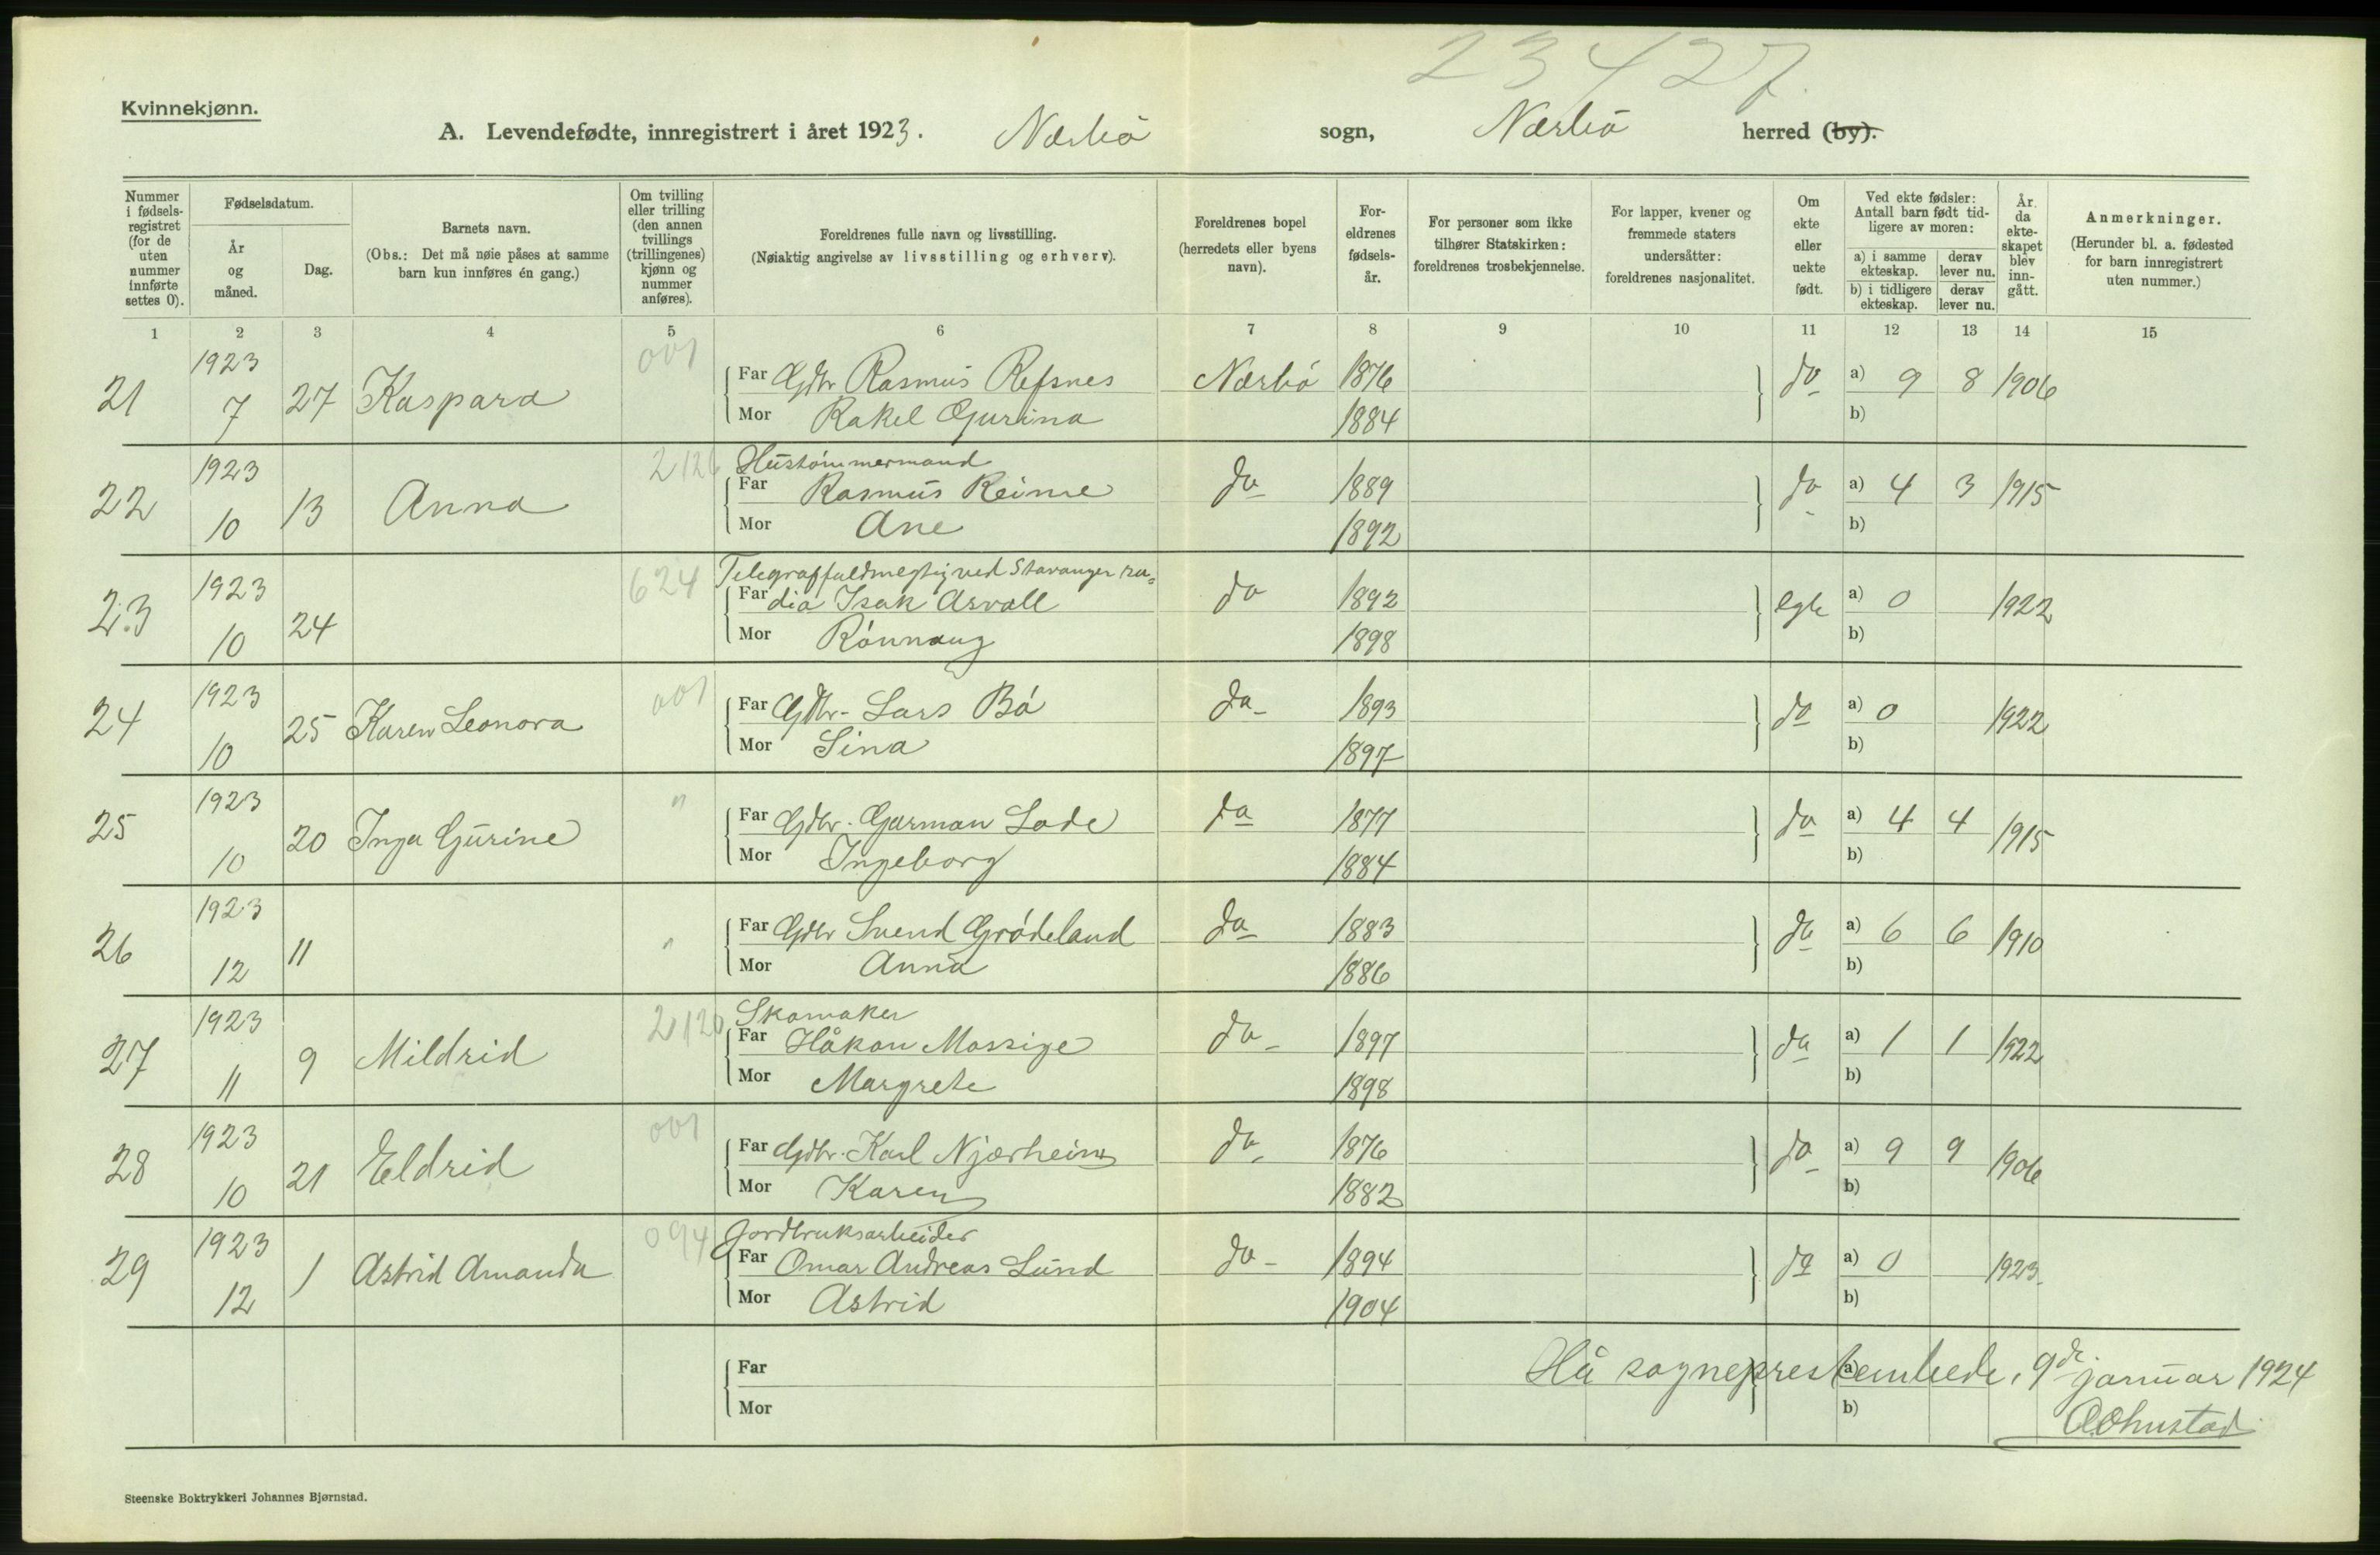 23427.
Kvinnekjønn.
A. Levendefødte, innregistrert i året 1923. Nærbø sogn, Nærbø herred (by).
Nummer i fødsels-registret (for de uten nummer innførte settes 0).
Fødselsdatum.
År og måned.
Dag.
Barnets navn.
(Obs.: Det må nøie påses at samme barn kun innføres én gang.)
Om tvilling eller trilling (den annen tvillings (trillingenes) kjønn og nummer anføres).
Foreldrenes fulle navn og livsstilling.
(Nøiaktig angivelse av livsstilling og erhverv).
Foreldrenes bopel (herredets eller byens navn).
For-eldrenes fødsels-år.
For personer som ikke tilhører Statskirken: foreldrenes trosbekjennelse.
For lapper, kvener og fremmede staters undersåtter: foreldrenes nasjonalitet.
Om ekte eller uekte født.
Ved ekte fødsler: Antall barn født tid-ligere av moren:
a) i samme ekteskap. derav lever nu.
b) i tidligere ekteskap. derav lever nu.
År da ekte-skapet blev inn-gått.
Anmerkninger.
(Herunder bl. a. fødested for barn innregistrert uten nummer.)
1 2 3 4 5 6 7 8 9 10 11 12 13 14 15
21 1923 7 27 Kaspara 001 Far Gdbr Rasmus Refsnes Nærbø 1876 do a) 9 8 1906
Mor Rakel Gurina 1884 b)
22 1923 10 13 Anna 2126 Hustømmermand
Far Rasmus Reime do 1889 do a) 4 3 1915
Mor Ane 1892 b)
23 1923 10 24 624 Telegraffuldmegtig ved Stavanger ra=
Far dio Isak Arvall do 1892 egte a) 0 1922
Mor Rønnaug 1898 b)
24 1923 10 25 Karen Leonora 001 Far Gdbr- Lars Bø do- 1893 do a) 0 1922
Mor Sina 1897 b)
25 1923 10 20 Inga Gurine " Far Gdbr. Garman Lode do 1877 do a) 4 4 1915
Mor Ingeborg 1884 b)
26 1923 12 11 " Far Gdbr Svend Grødeland do 1883 do a) 6 6 1910
Mor Anna 1886 b)
27 1923 11 9 Mildrid 2120 Skomaker
Far Håkon Mossige do- 1897 do a) 1 1 1922
Mor Margrete 1898 b)
28 1923 10 21 Eldrid 001 Far Gdbr. Karl Njærheim do. 1876 do a) 9 9 1906
Mor Karen 1882 b)
29 1923 12 1 Astrid Amanda 094 Jordbruksarbeider
Far Omar Andreas Lund do- 1894 do a) 0 1923.
Mor Astrid 1904 b)
Far a)
Mor b)
Hå sogneprestembede, 9de januar 1924
Steenske Boktrykkeri Johannes Bjørnstad.